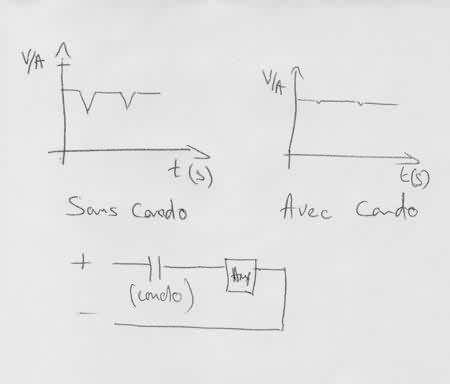 V/A
t(s)
Sans Condo
V/A
t(s)
Avec Condo
+
(condo)
Amp
—